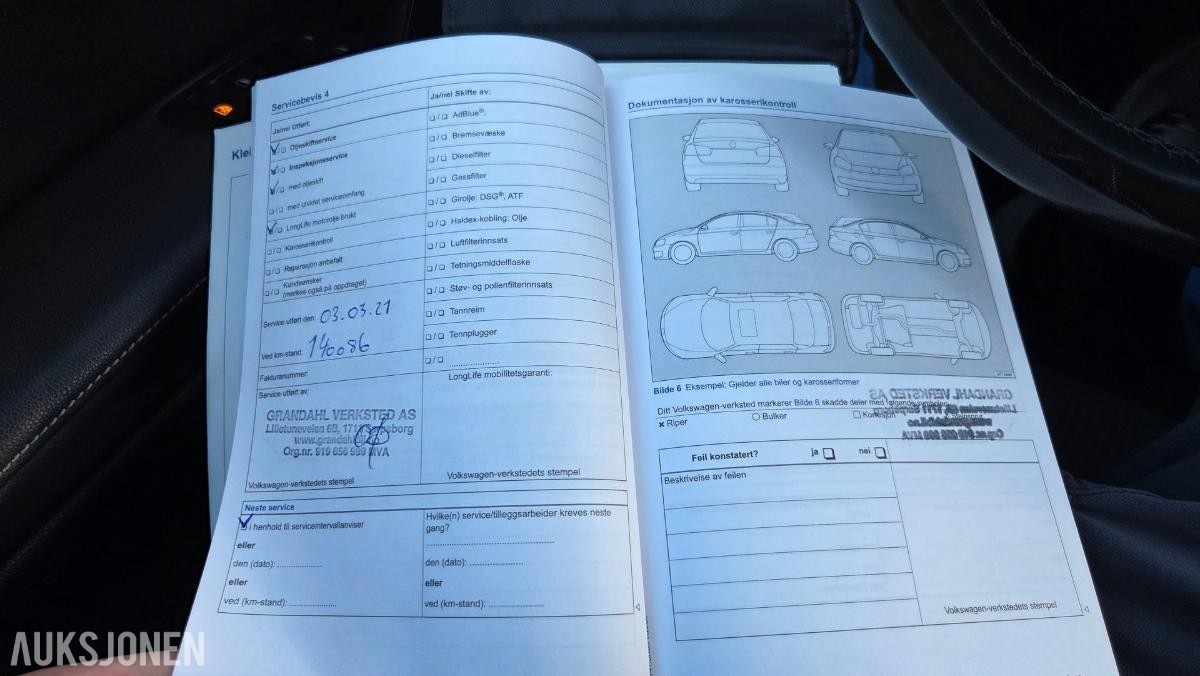 Servicebevis 4
Ja/nei Utført:
Oljeskiftservice
Inspeksjonsservice
med oljeskift
med utvidet serviceomfang
LongLife motorolje brukt
Karosserikontroll
Reparasjon anbefalt
Kundeønsker
(merkes også på oppdraget)
Service utført den: 03.03.21
Ved km-stand: 140086
Fakturanummer:
Service utført av:
GRANDAHL VERKSTED AS
Lilletuneveien 6B, 1711 Sarpsborg
www.grandahlbil.no
Org.nr. 919 656 999 MVA
Volkswagen-verkstedets stempel
Ja/nei Skifte av:
AdBlue®:
Bremsevæske
Dieselfilter
Gassfilter
Girolje: DSG®, ATF
Haldex-kobling: Olje
Luftfilterinnsats
Tetningsmiddelflaske
Støv- og pollenfilterinnsats
Tannreim
Tennplugger
LongLife mobilitetsgaranti:
Volkswagen-verkstedets stempel
Neste service
i henhold til serviceintervallanviser
eller
den (dato):
eller
ved (km-stand):
Hvilke(n) service/tilleggsarbeider kreves neste
gang?
den (dato):
eller
ved (km-stand):
Klei
Dokumentasjon av karosserikontroll
Bilde 6 Eksempel: Gjelder alle biler og karosseriformer
Ditt Volkswagen-verksted markerer Bilde 6 skadde deler med følgende symboler:
× Riper
Bulker
Korrosjon
GRANDAHL VERKSTED AS
Lilletuneveien 6B, 1711 Sarpsborg
www.grandahlbil.no
Org.nr. 919 656 999 MVA
Feil konstatert?
ja
nei
Beskrivelse av feilen
Volkswagen-verkstedets stempel
AUKSJONEN